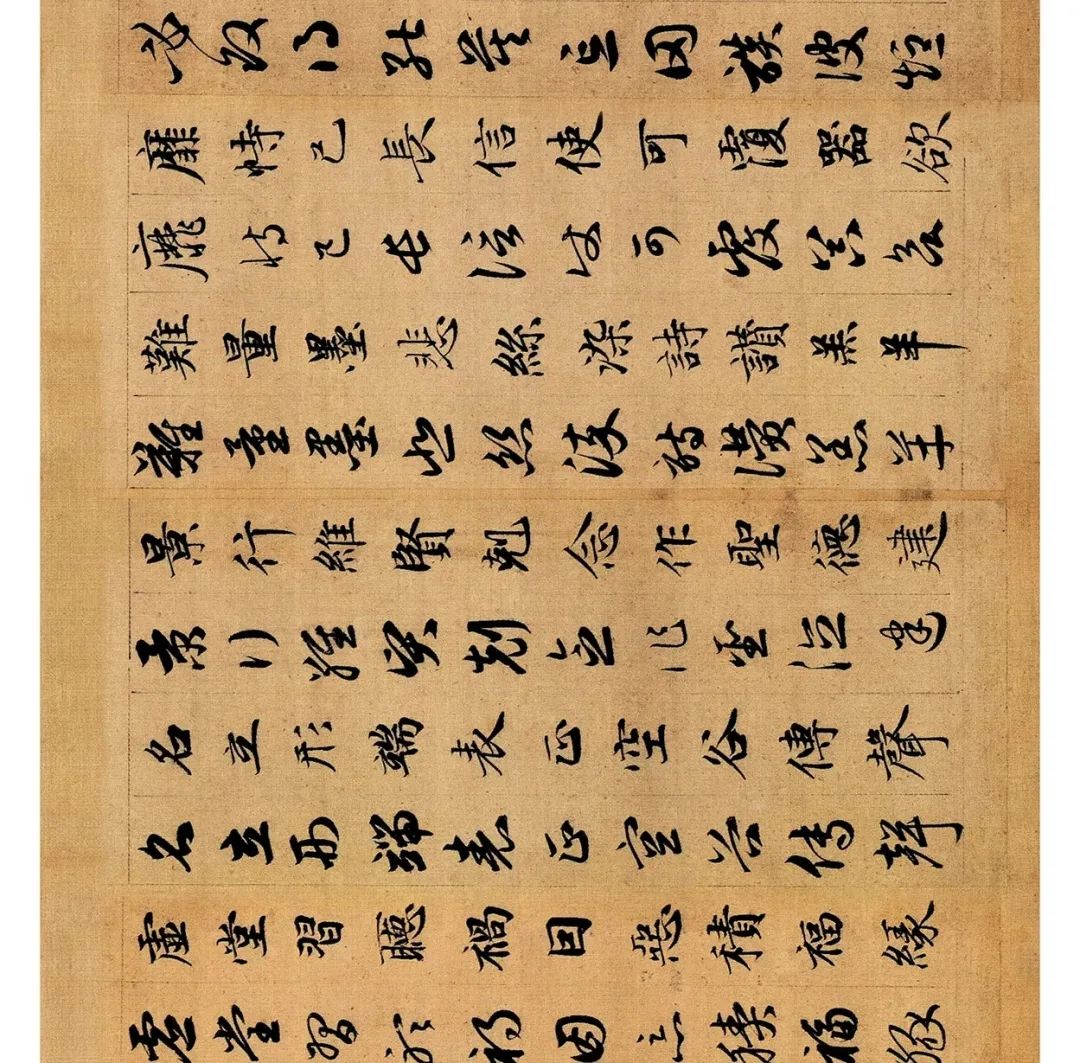 必改得能莫忘罔談彼短
靡恃己長信使可覆器欲
靡恃己長信使可覆器欲
難量墨悲絲染詩讚羔羊
難量墨悲絲染詩讚羔羊
景行維賢剋念作聖德建
景行維賢剋念作聖德建
名立形端表正空谷傳聲
名立形端表正空谷傳聲
虛堂習聽禍因惡積福緣
虛堂習聽禍因惡積福緣